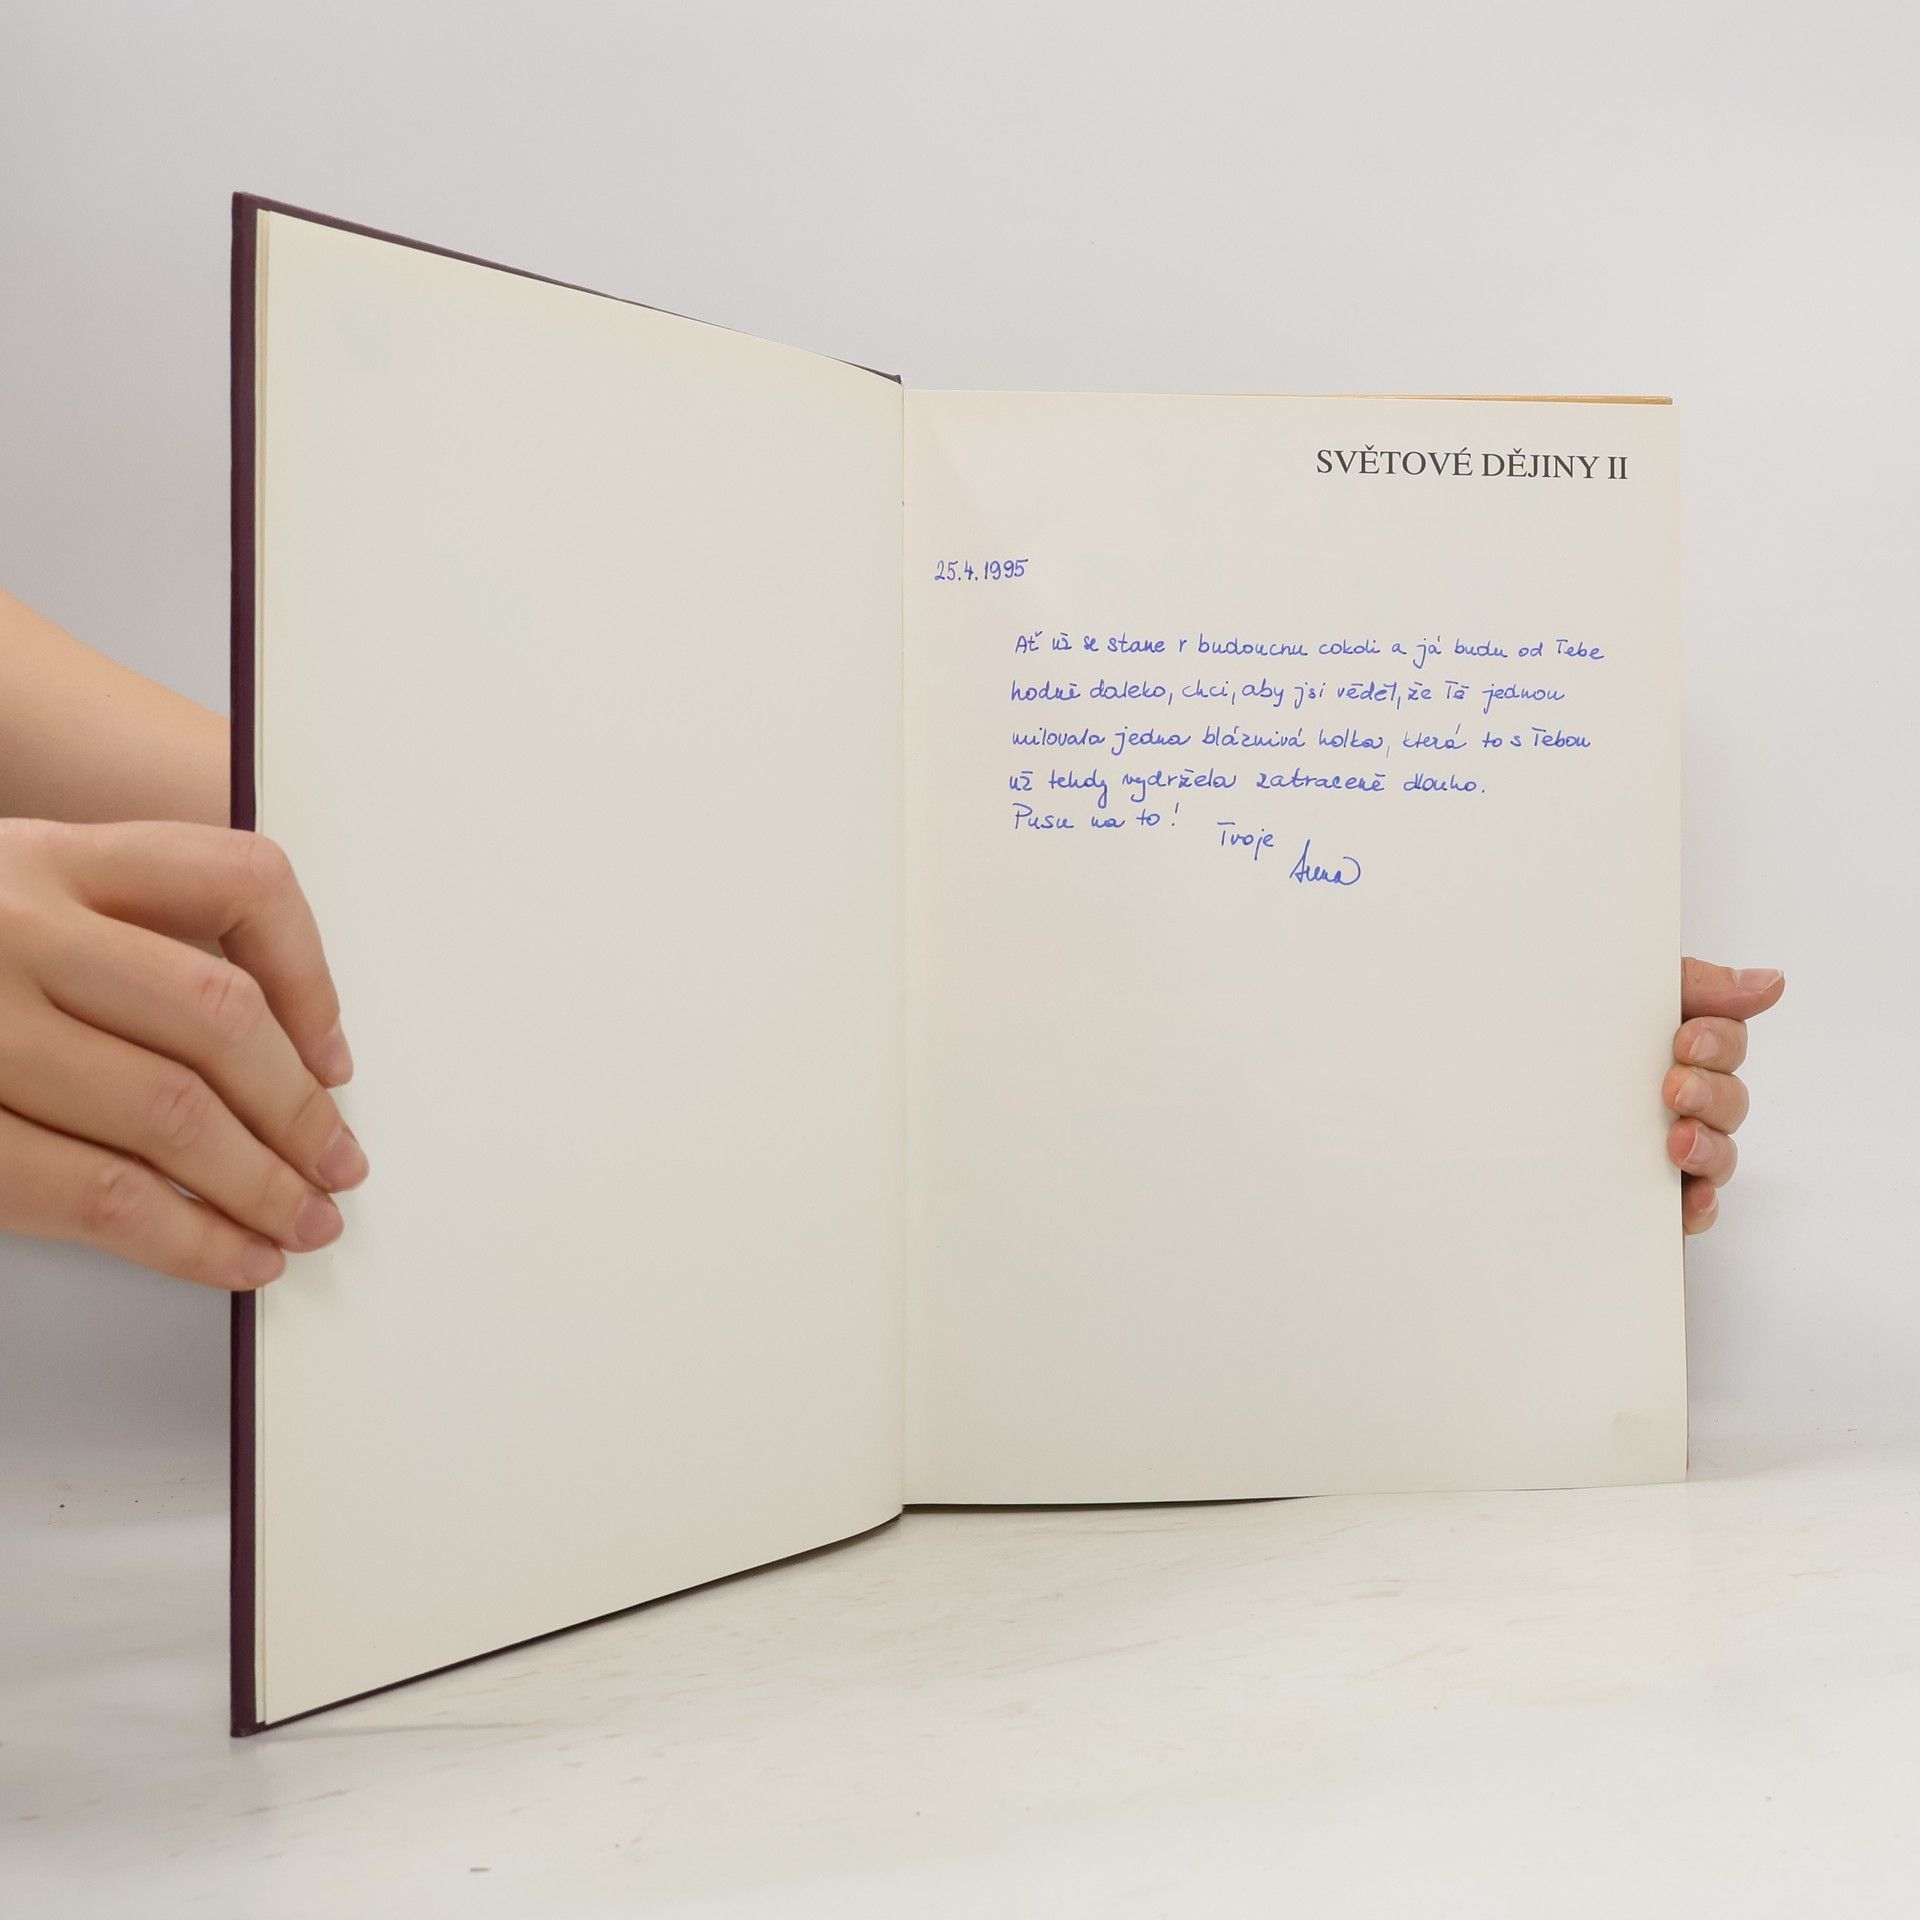 SVĚTOVÉ DĚJINY II
25.4.1995
Ať už se stane v budoucnu cokoli a já budu od Tebe
hodně daleko, chci, aby jsi věděl, že Tě jednou
milovala jedna bláznivá holka, která to s Tebou
už tehdy vydržela zatraceně dlouho.
Pusu na to!
Tvoje